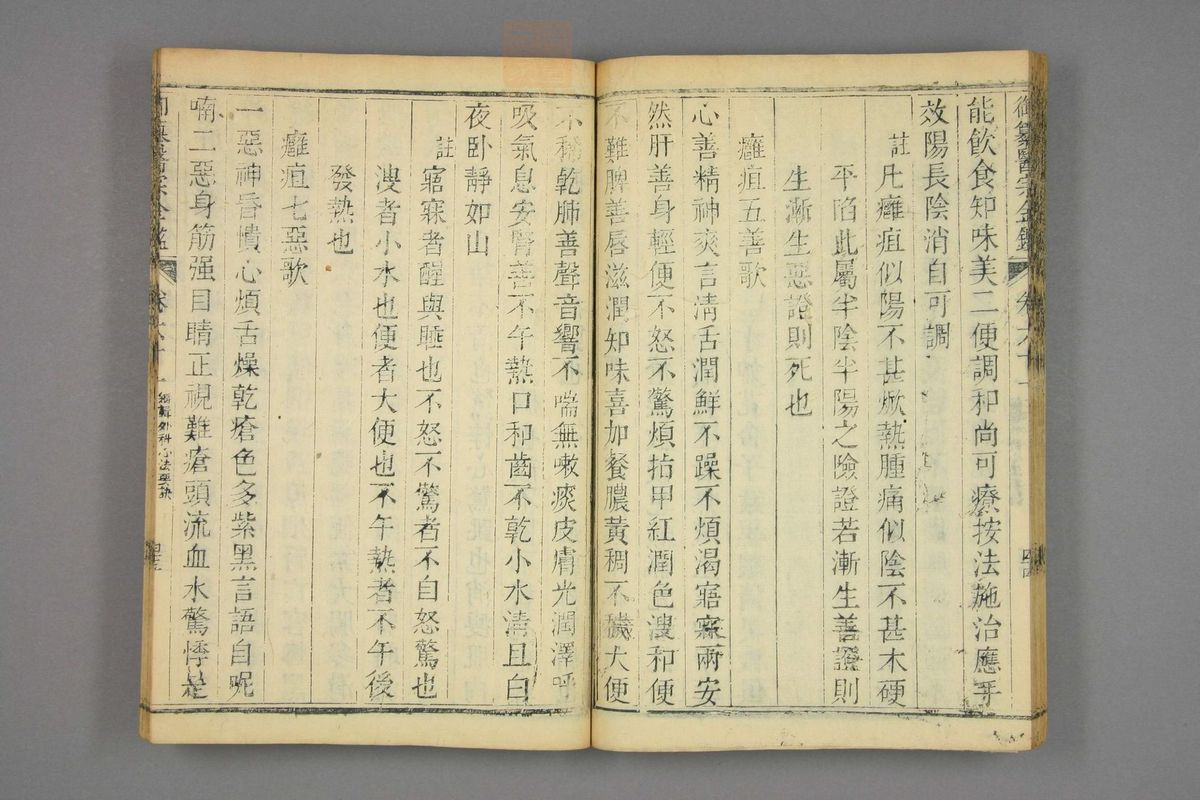 御纂醫宗金鑑 卷六十一
能飲食知味美二便調和尚可療按法施治應手
效陽長陰消自可調
註凡癰疽似陽不甚焮熱腫痛似陰不甚木硬
平陷此屬半陰半陽之險證若漸生善證則
生漸生惡證則死也
癰疽五善歌
心善精神爽言清舌潤鮮不躁不煩渴寤寐兩安
然肝善身輕便不怒不驚煩指甲紅潤色溲和便
不難脾善唇滋潤知味喜加餐膿黃稠不穢大便
不稀乾肺善聲音響不喘無嗽痰皮膚光潤澤呼
吸氣息安腎善不午熱口和齒不乾小水清且白
夜卧靜如山
註寤寐者醒與睡也不怒不驚者不自怒驚也
溲者小水也便者大便也不午熱者不午後
發熱也
癰疽七惡歌
一惡神昏憒心煩舌燥乾瘡色多紫黑言語自呢
喃二惡身筋强目睛正視難瘡頭流血水驚悸是
御纂醫宗金鑑 卷六十一 編輯外科心法要訣